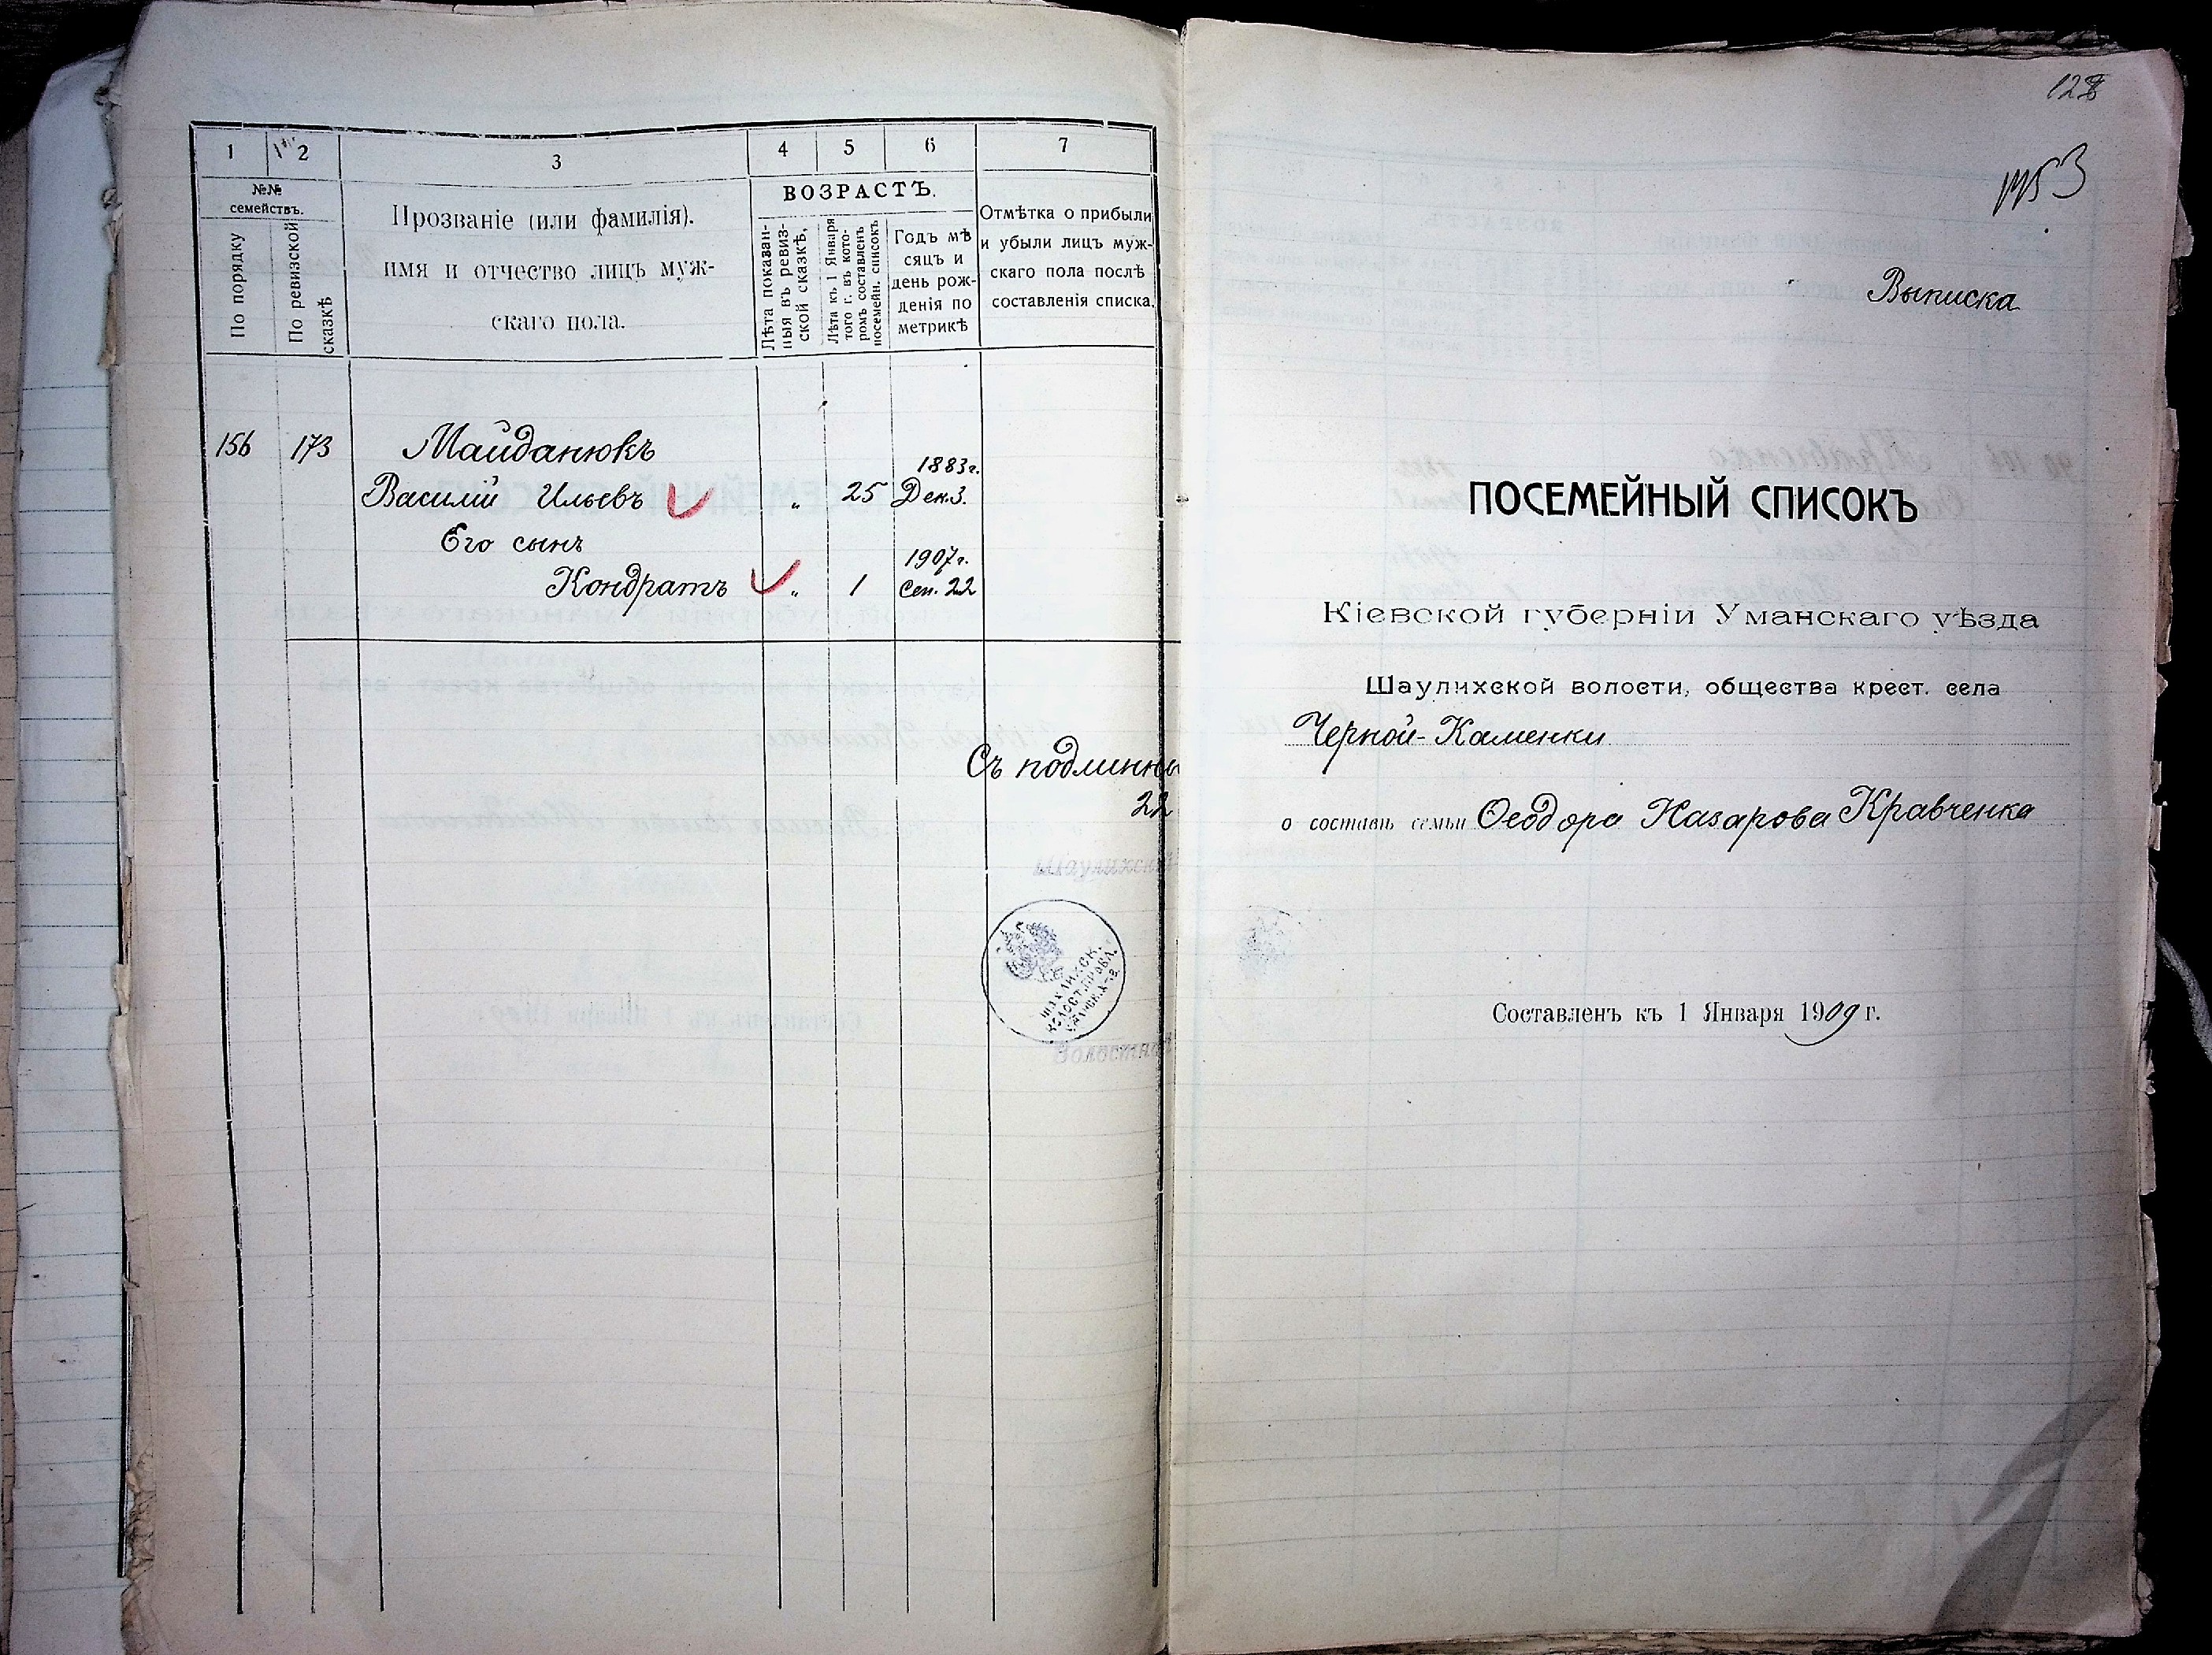 1 2 3 4 5 6 7
№№ семействъ.
По порядку
По ревизской сказкѣ
Прозваніе (или фамилія).
имя и отчество лицъ муж-
скаго пола.
ВОЗРАСТЪ.
Лѣта показан-
ныя въ ревиз-
ской сказкѣ,
Лѣта къ 1 Января
того г. въ кото-
ромъ составленъ
посемейн. списокъ
Годъ мѣ
сяцъ и
день рож-
денія по
метрикѣ
Отмѣтка о прибыли
и убыли лицъ муж-
скаго пола послѣ
составленія списка.
156 173 Майданюкъ
1883г.
Василій Ильевъ „ 25 Дек.3.
Его сынъ
1907г.
Кондратъ „ 1 Сен. 22
Съ подлинны
22
Шаулихскій
ШАУЛИХСК.
ВОЛОСТ. ПРАВЛ.
УМАНСК. У-ЗА.
Волостной
Выписка
ПОСЕМЕЙНЫЙ СПИСОКЪ
Кіевской губерніи Уманскаго уѣзда
Шаулихской волости, общества крест. села
Черной-Каменки
о составѣ семьи Ѳеодора Назарова Кравченка
Составленъ къ 1 Января 1909 г.